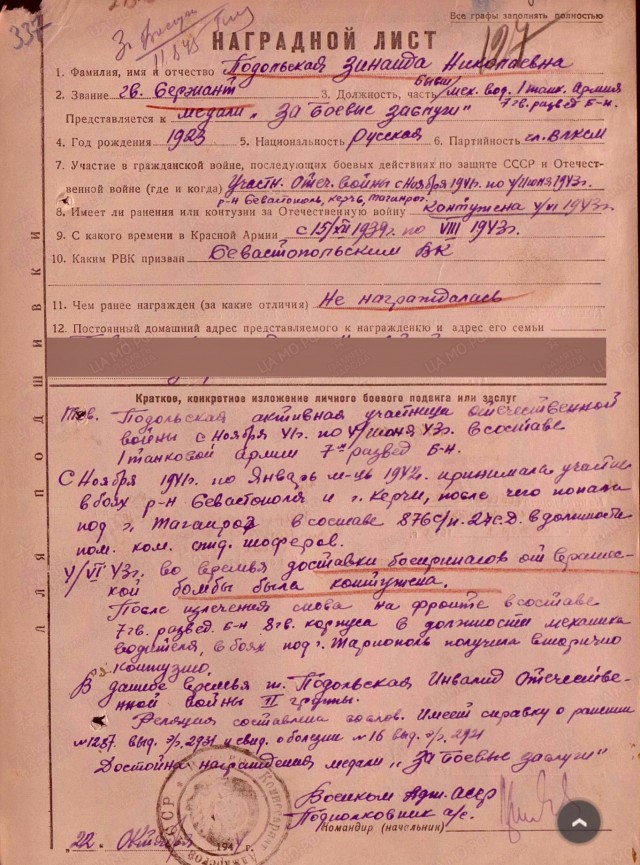 337
За Боевые Засл
11.5.45
Все графы заполнять полностью
НАГРАДНОЙ ЛИСТ
127
1. Фамилия, имя и отчество Подольская Зинаида Николаевна
2. Звание гв. Сержант 3. Должность, часть бывш мех. вод. 1 танк. Армия
Представляется к медали „За Боевые заслуги" 7 гв. развед Б-н.
4. Год рождения 1923 5. Национальность Русская 6. Партийность чл. ВЛКСМ
7. Участие в гражданской войне, последующих боевых действиях по защите СССР и Отечест-
венной войне (где и когда) Участн. Отеч. войны с Ноября 1941г. по V/Июня 1943г.
р-н Севастополь, Керчь, таганрог.
8. Имеет ли ранения или контузии за Отечественную войну контужена 4/VI 1943г.
9. С какого времени в Красной Армии с 15/XII 1939г. по VIII 1943г.
10. Каким РВК призван Севастопольским ВК
11. Чем ранее награжден (за какие отличия) Не награждалась
12. Постоянный домашний адрес представляемого к награждению и адрес его семьи
ДЛЯ ПОДШИВКИ
Краткое, конкретное изложение личного боевого подвига или заслуг
Тов. Подольская активная участница отечественной
войны с Ноября 41г. по V/июня 43г. в составе
1 танковой армии 7го развед Б-н.
С Ноября 1941г. по Январь м-ць 1942г. принимала участие
в боях р-н Севастополя и г. Керчи, после чего попала
под г. Таганрог в составе 876 с/п. 27 с.д. в должности
пом. ком. отд. шоферов.
4/VI 43г. во время доставки боеприпасов от вражес-
кой бомбы была контужена.
После излечения снова на фронте в составе
7 гв. развед. б-н 8 гв. корпуса в должности механика
водителя, в боях под г. Жариополь получила вторично
контузию.
В данное время т. Подольская Инвалид Отечестве-
нной войны II группы.
Реляция составлена со слов. Имеет справку о ранении
№1287 выд. э/г. 2931 и свид. о болезни №16 выд. э/г. 2931
Достойна награждения медали „За Боевые заслуги"
Военком Адж. АССР
Подполковник а/с.
Командир (начальник)
„22" октября 194 г.